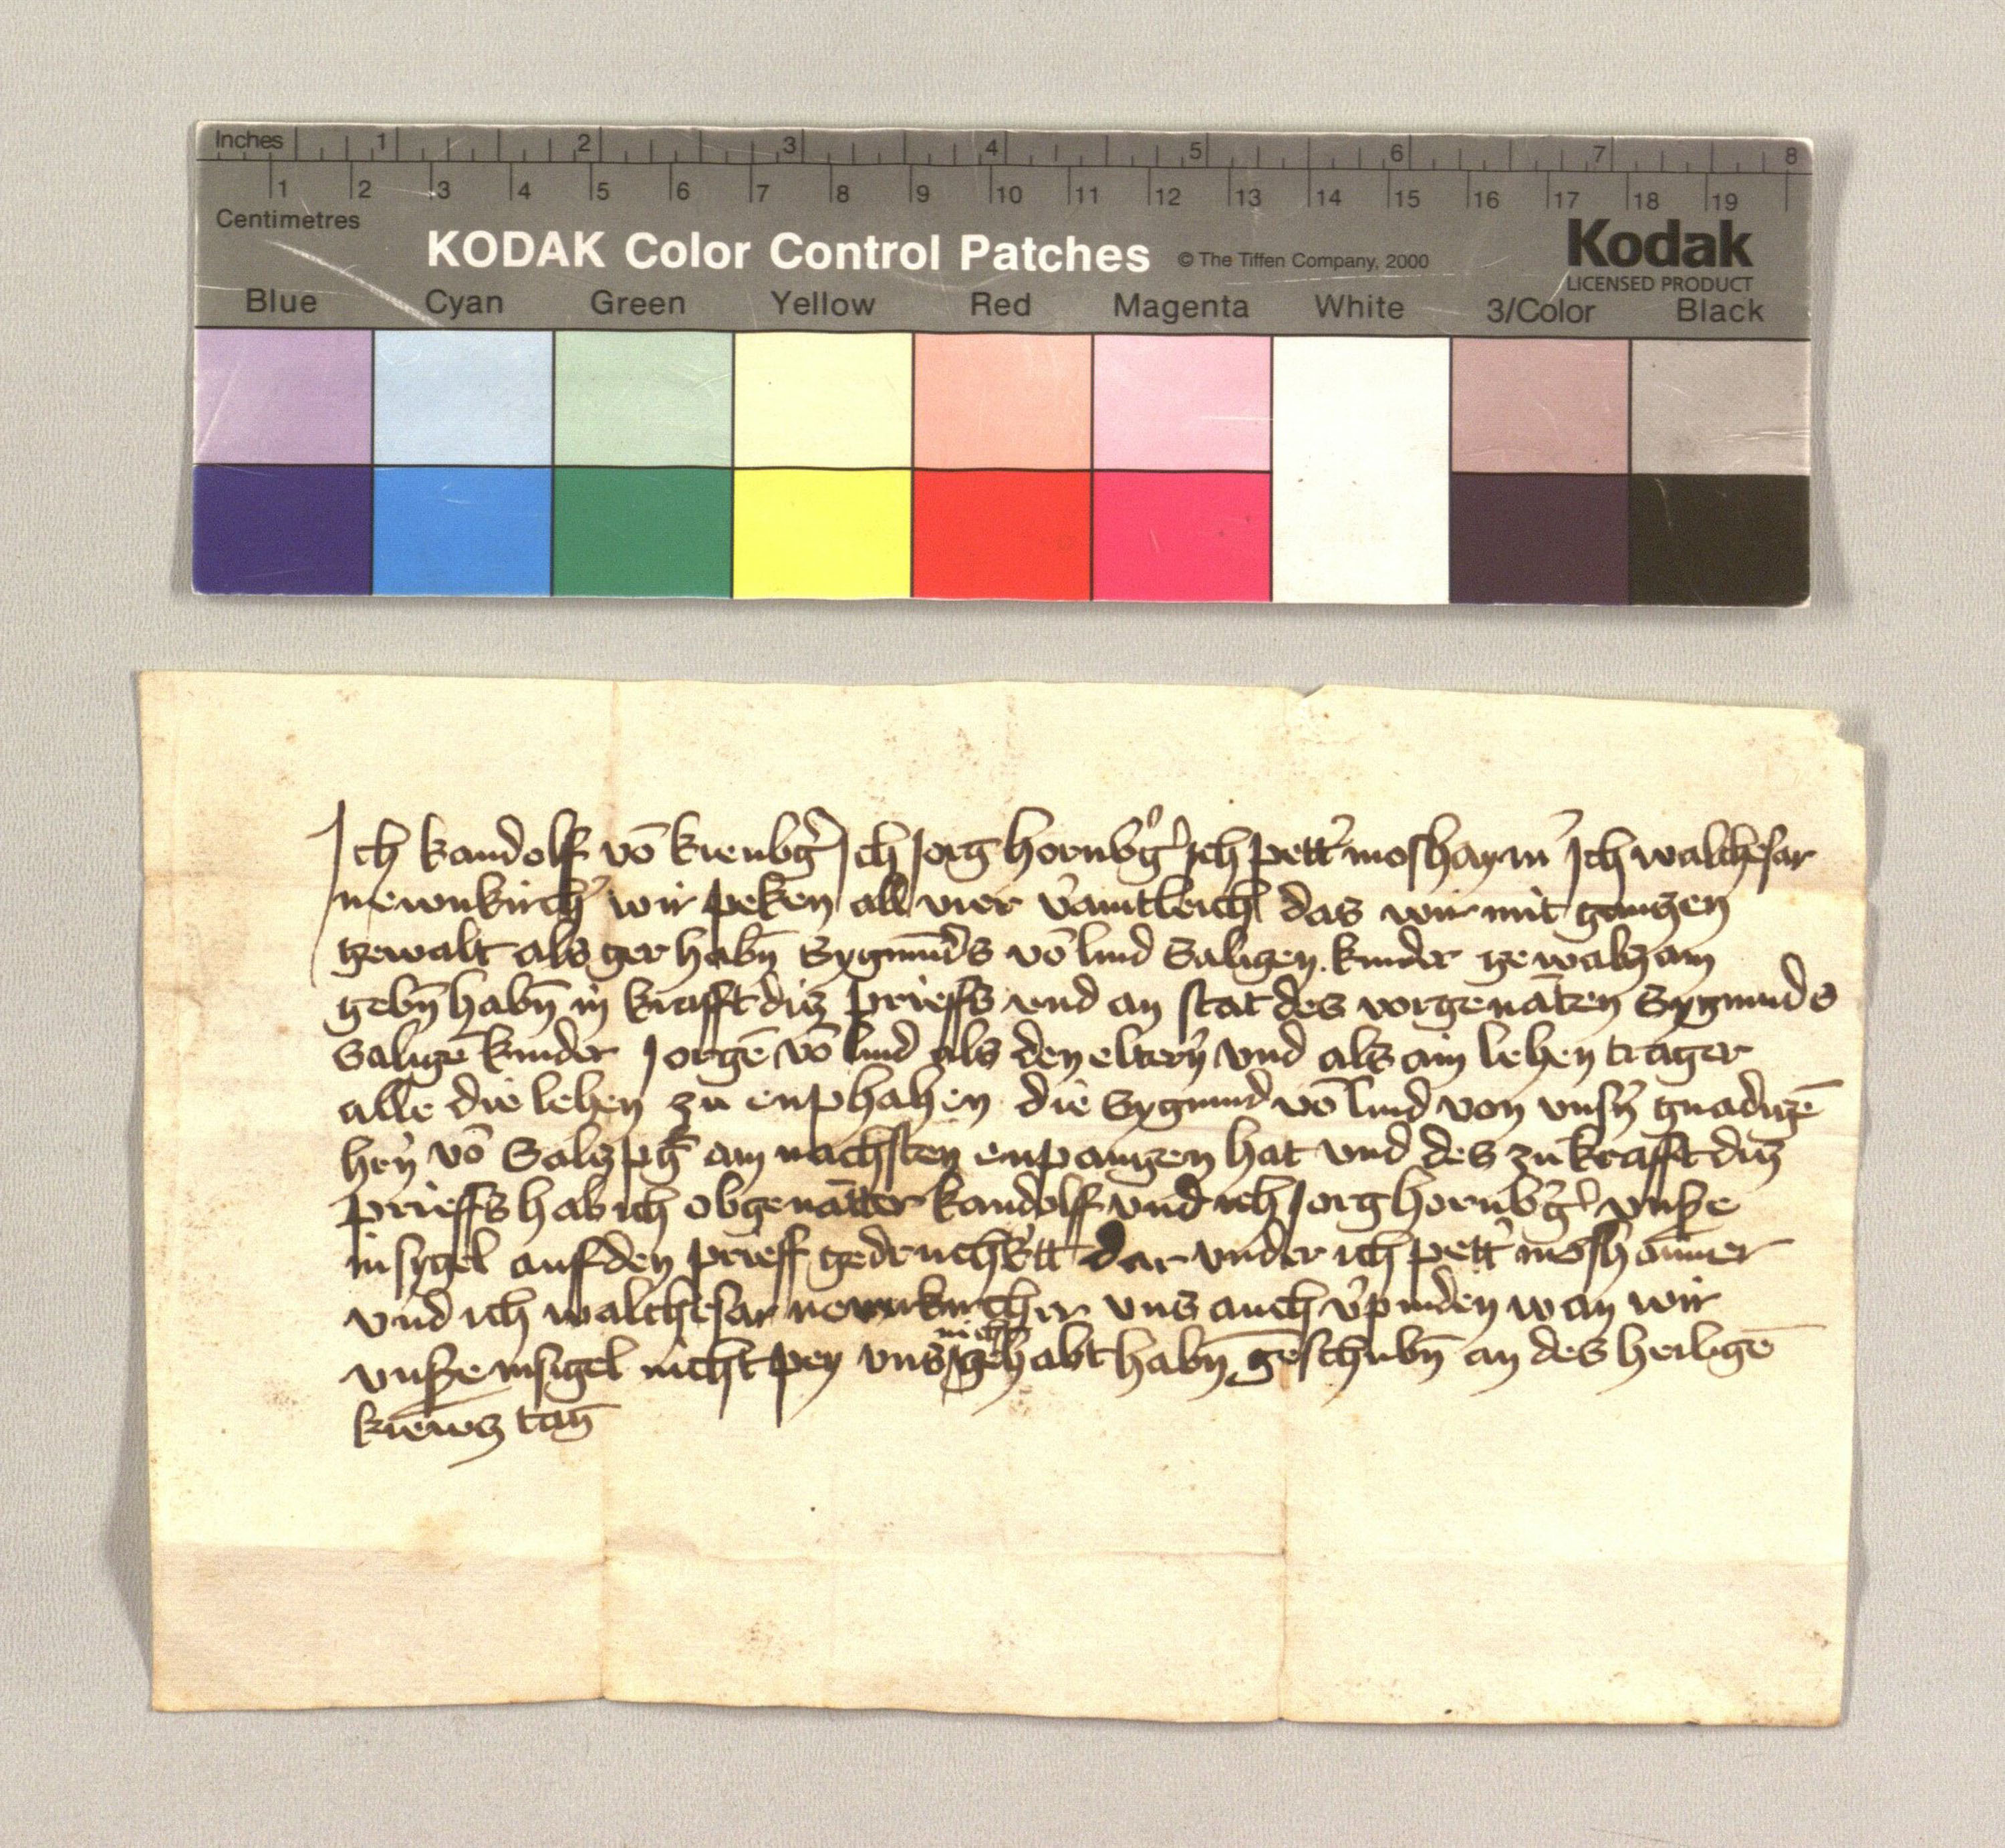 Inches 1 2 3 4 5 6 7 8
1 2 3 4 5 6 7 8 9 10 11 12 13 14 15 16 17 18 19
Centimetres
KODAK Color Control Patches © The Tiffen Company, 2000 Kodak
LICENSED PRODUCT
Blue Cyan Green Yellow Red Magenta White 3/Color Black
Ich kandolf vō kienbg̾ Ich Jorg hornbg̾ ich pett̾ moshaym̾ Ich walthesar
newnkirch̾ wir peken all vier v̾amtleich das wir mit ganzen
gewalt als gerhabn̄ Sygmūds vō lind Saligen kinder gewalzam
gebn̄ habn̄ in krafft diz prieffs vnd an stat des vorgenāten Sygmunds
Saligē kinder Jorgē vō lind als den eltern̄ vnd als ain lehen trager
alle die lehen zu enphahen die Sygmund vō lind von vnsn̾ gnadigē
hrn̾ vō Salzpg̾ am nachsten enpangen hat vnd des zu krafft diz
prieffs hab ich obgenātter kandolff vnd ich Jorg hornbg̾ vnße
insygel auf den prieff gedruchktt dar vnder ich pett̾ moshaimer
vnd ich walthesar newnkircher vns auch v̾pinden wan wir
vnße insigel nicht pey vns nicht gehabt habn̄ geschribn̄ an des heiligē
krewz tag